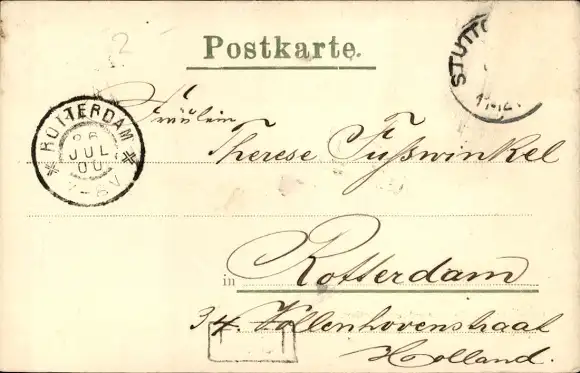 Postkarte.
STUTTG
ROTTERDAM
26
JUL
00
Fräulein
Therese Fußwinkel
in Rotterdam
34. Vollenhovenstraat
Holland.